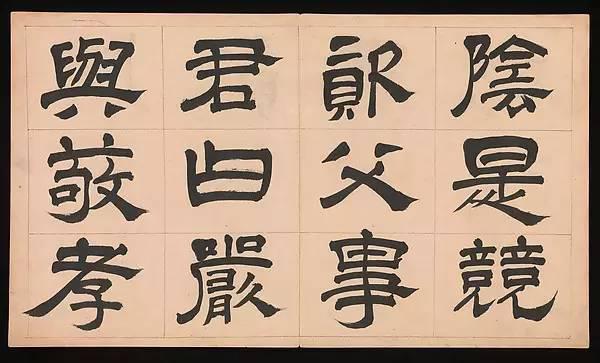 陰是競
資父事
君曰嚴
與敬孝